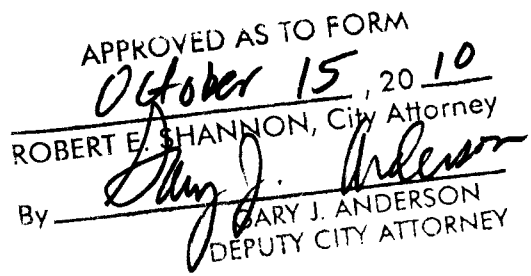 APPROVED AS TO FORM
October 15, 20 10
ROBERT E. SHANNON, City Attorney
By Gary J. Anderson
GARY J. ANDERSON
DEPUTY CITY ATTORNEY